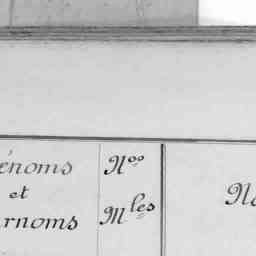 énoms
et
rnoms
Nos
Mles